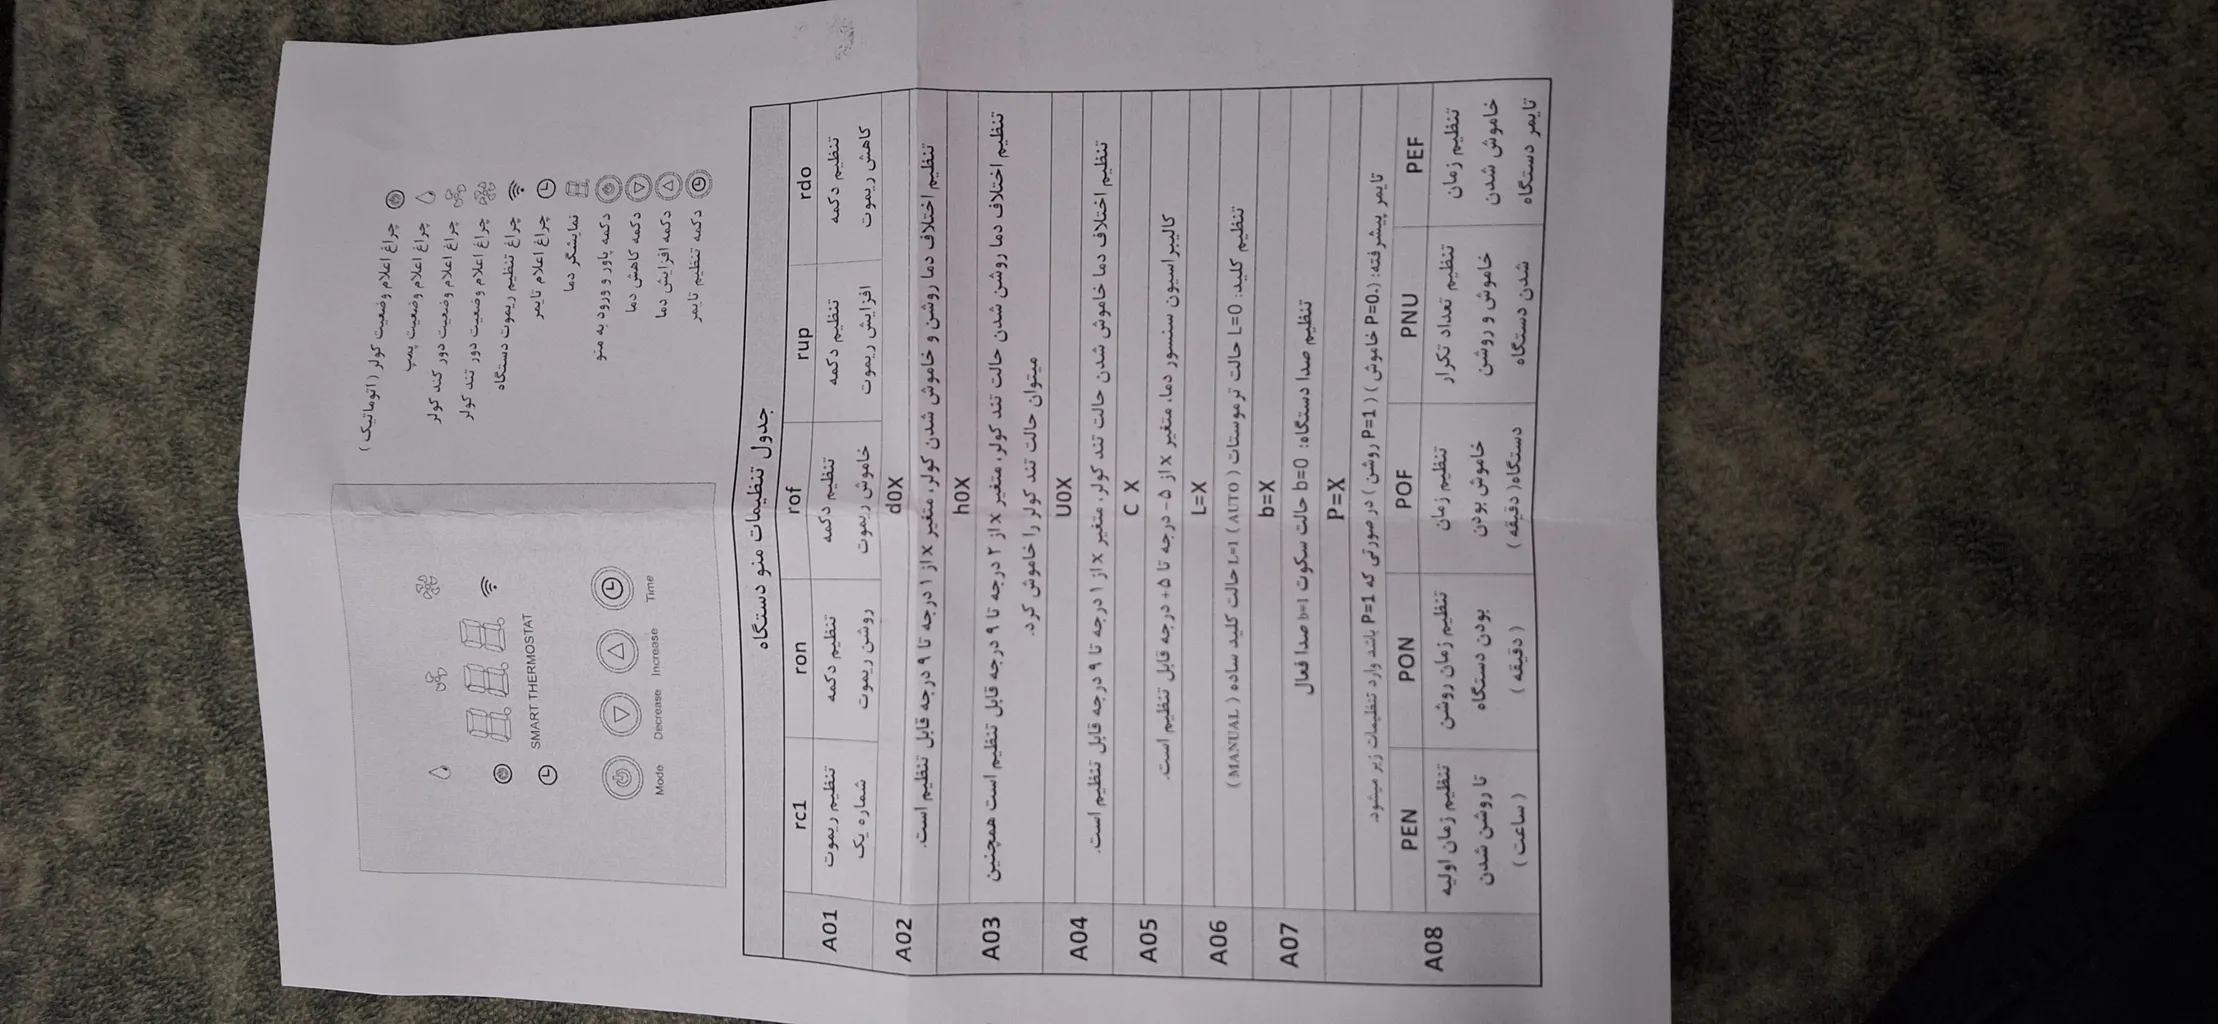 چراغ اعلام وضعیت کولر ( اتوماتیک )
چراغ اعلام وضعیت پمپ
چراغ اعلام وضعیت دور کند کولر
چراغ اعلام وضعیت دور تند کولر
چراغ تنظیم ریموت دستگاه
چراغ اعلام تایمر
نمایشگر دما
دکمه پاور و ورود به منو
دکمه کاهش دما
دکمه افزایش دما
دکمه تنظیم تایمر
8.8.8
SMART THERMOSTAT
Mode Decrease Increase Time
جدول تنظیمات منو دستگاه
A01
rc1 ron rof rup rdo
تنظیم ریموت شماره یک
تنظیم دکمه روشن ریموت
تنظیم دکمه خاموش ریموت
تنظیم دکمه افزایش ریموت
تنظیم دکمه کاهش ریموت
A02
d0X
تنظیم اختلاف دما روشن و خاموش شدن کولر، متغیر X از ۱ درجه تا ۹ درجه قابل تنظیم است.
A03
h0X
تنظیم اختلاف دما روشن شدن حالت تند کولر، متغیر X از ۲ درجه تا ۹ درجه قابل تنظیم است همچنین
میتوان حالت تند کولر را خاموش کرد.
A04
U0X
تنظیم اختلاف دما خاموش شدن حالت تند کولر، متغیر X از ۱ درجه تا ۹ درجه قابل تنظیم است.
A05
C X
کالیبراسیون سنسور دما، متغیر X از ۵- درجه تا ۵+ درجه قابل تنظیم است.
A06
L=X
تنظیم کلید: L=0 حالت ترموستات ( AUTO ) L=1 حالت کلید ساده ( MANUAL )
A07
b=X
تنظیم صدا دستگاه: b=0 حالت سکوت b=1 صدا فعال
A08
P=X
تایمر پیشرفته: (P=0 خاموش ) ( P=1 روشن ) در صورتی که P=1 باشد وارد تنظیمات زیر میشود.
PEN PON POF PNU PEF
تنظیم زمان اولیه
تا روشن شدن
( ساعت )
تنظیم زمان روشن
بودن دستگاه
( دقیقه )
تنظیم زمان
خاموش بودن
دستگاه( دقیقه )
تنظیم تعداد تکرار
خاموش و روشن
شدن دستگاه
تنظیم زمان
خاموش شدن
تایمر دستگاه